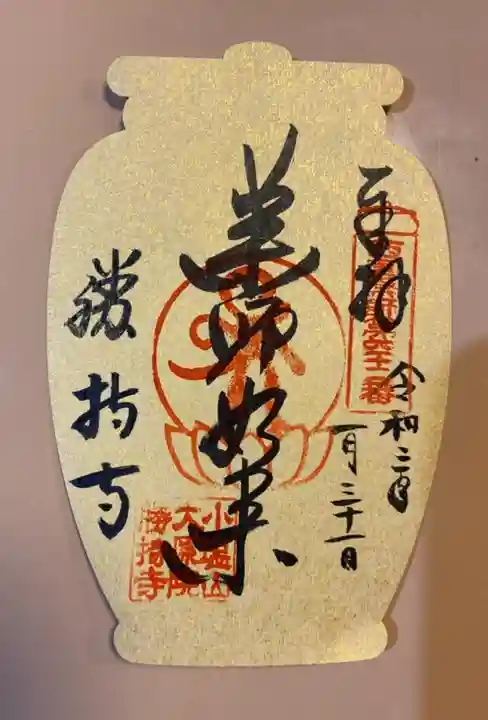 奉拝
令和二年
一月三十一日
薬師如来
勝持寺
小塩山
大原院
勝持寺